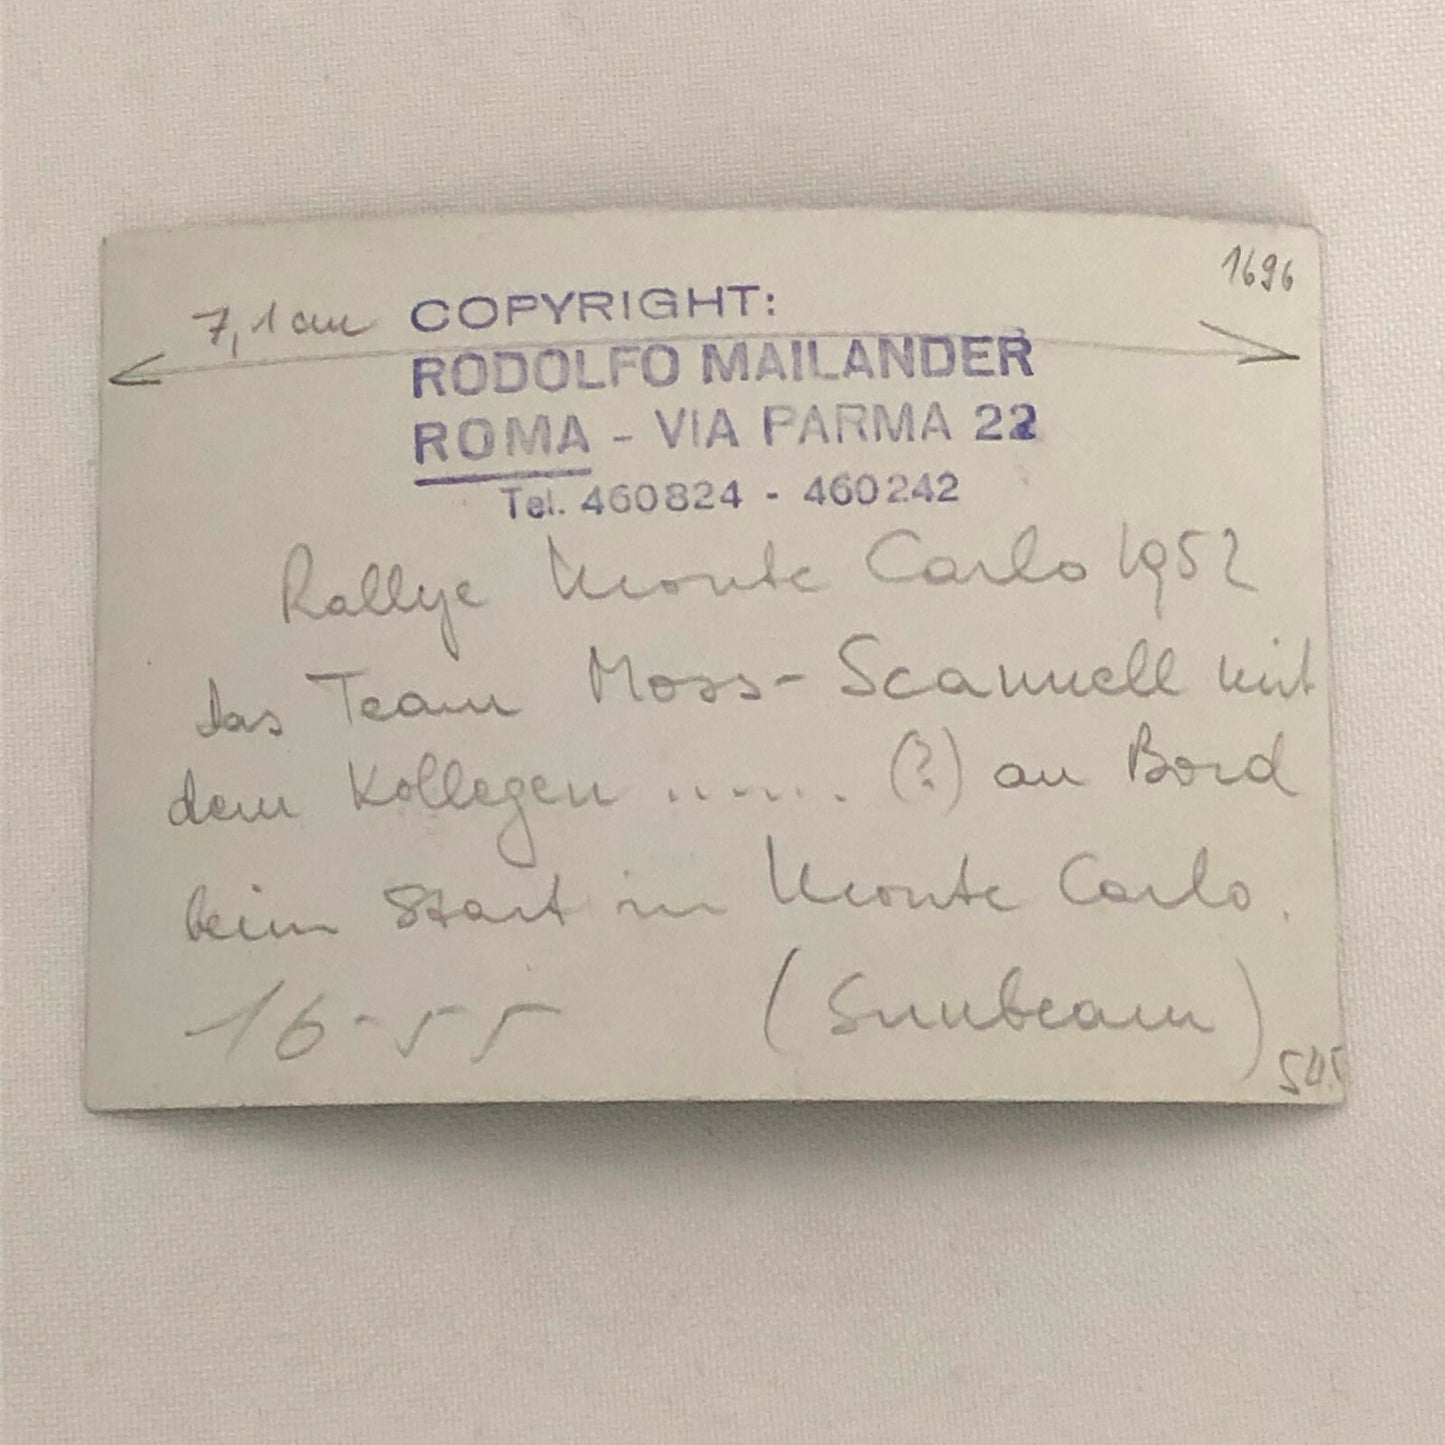 1696
7,1 cm
COPYRIGHT:
RODOLFO MAILANDER
ROMA - VIA PARMA 22
Tel. 460824 - 460242
Rallye Monte Carlo 1952
das Team Moss-Scannell mit
dem Kollegen ....... (?) an Bord
beim Start in Monte Carlo.
(Sunbeam)
16-55